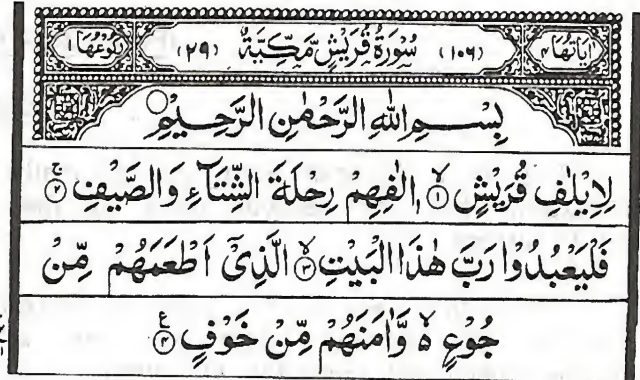 اٰيَاتُهَا ٤ (١٠٦) سُوْرَةُ قُرَيْشٍ مَّكِّيَّةٌ (٢٩) رُكُوْعُهَا ١
بِسْمِ اللهِ الرَّحْمٰنِ الرَّحِيْمِ
لِاِيْلٰفِ قُرَيْشٍ ۙ﴿١﴾ اٖلٰفِهِمْ رِحْلَةَ الشِّتَآءِ وَالصَّيْفِ ۚ﴿٢﴾
فَلْيَعْبُدُوْا رَبَّ هٰذَا الْبَيْتِ ۙ﴿٣﴾ الَّذِىْٓ اَطْعَمَهُمْ مِّنْ
جُوْعٍ ۙ۬ وَّاٰمَنَهُمْ مِّنْ خَوْفٍ ﴿٤﴾ ع